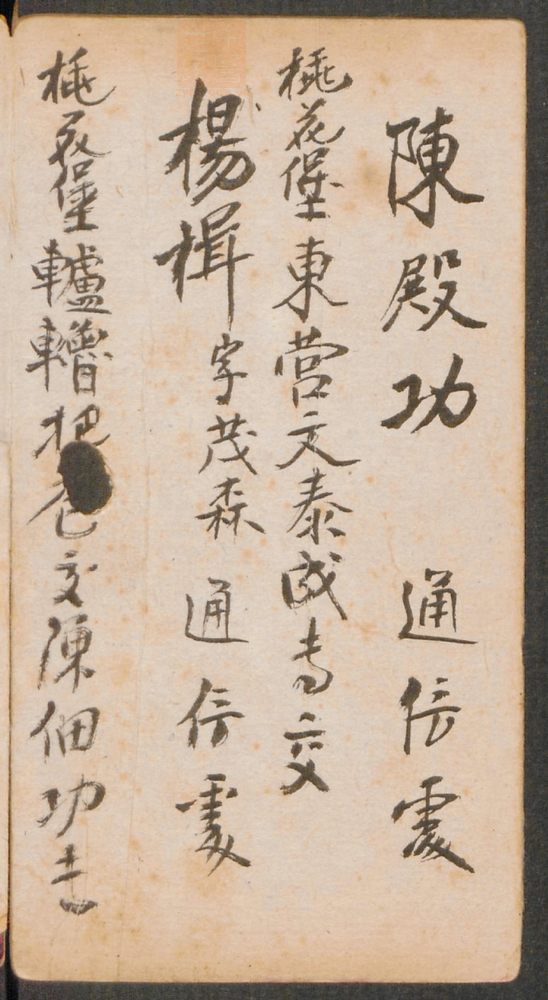 陳殿功 通信處
桃花堡東营文泰成寺交
楊楫字茂森 通信處
桃花堡轤轤把 交陳佃功